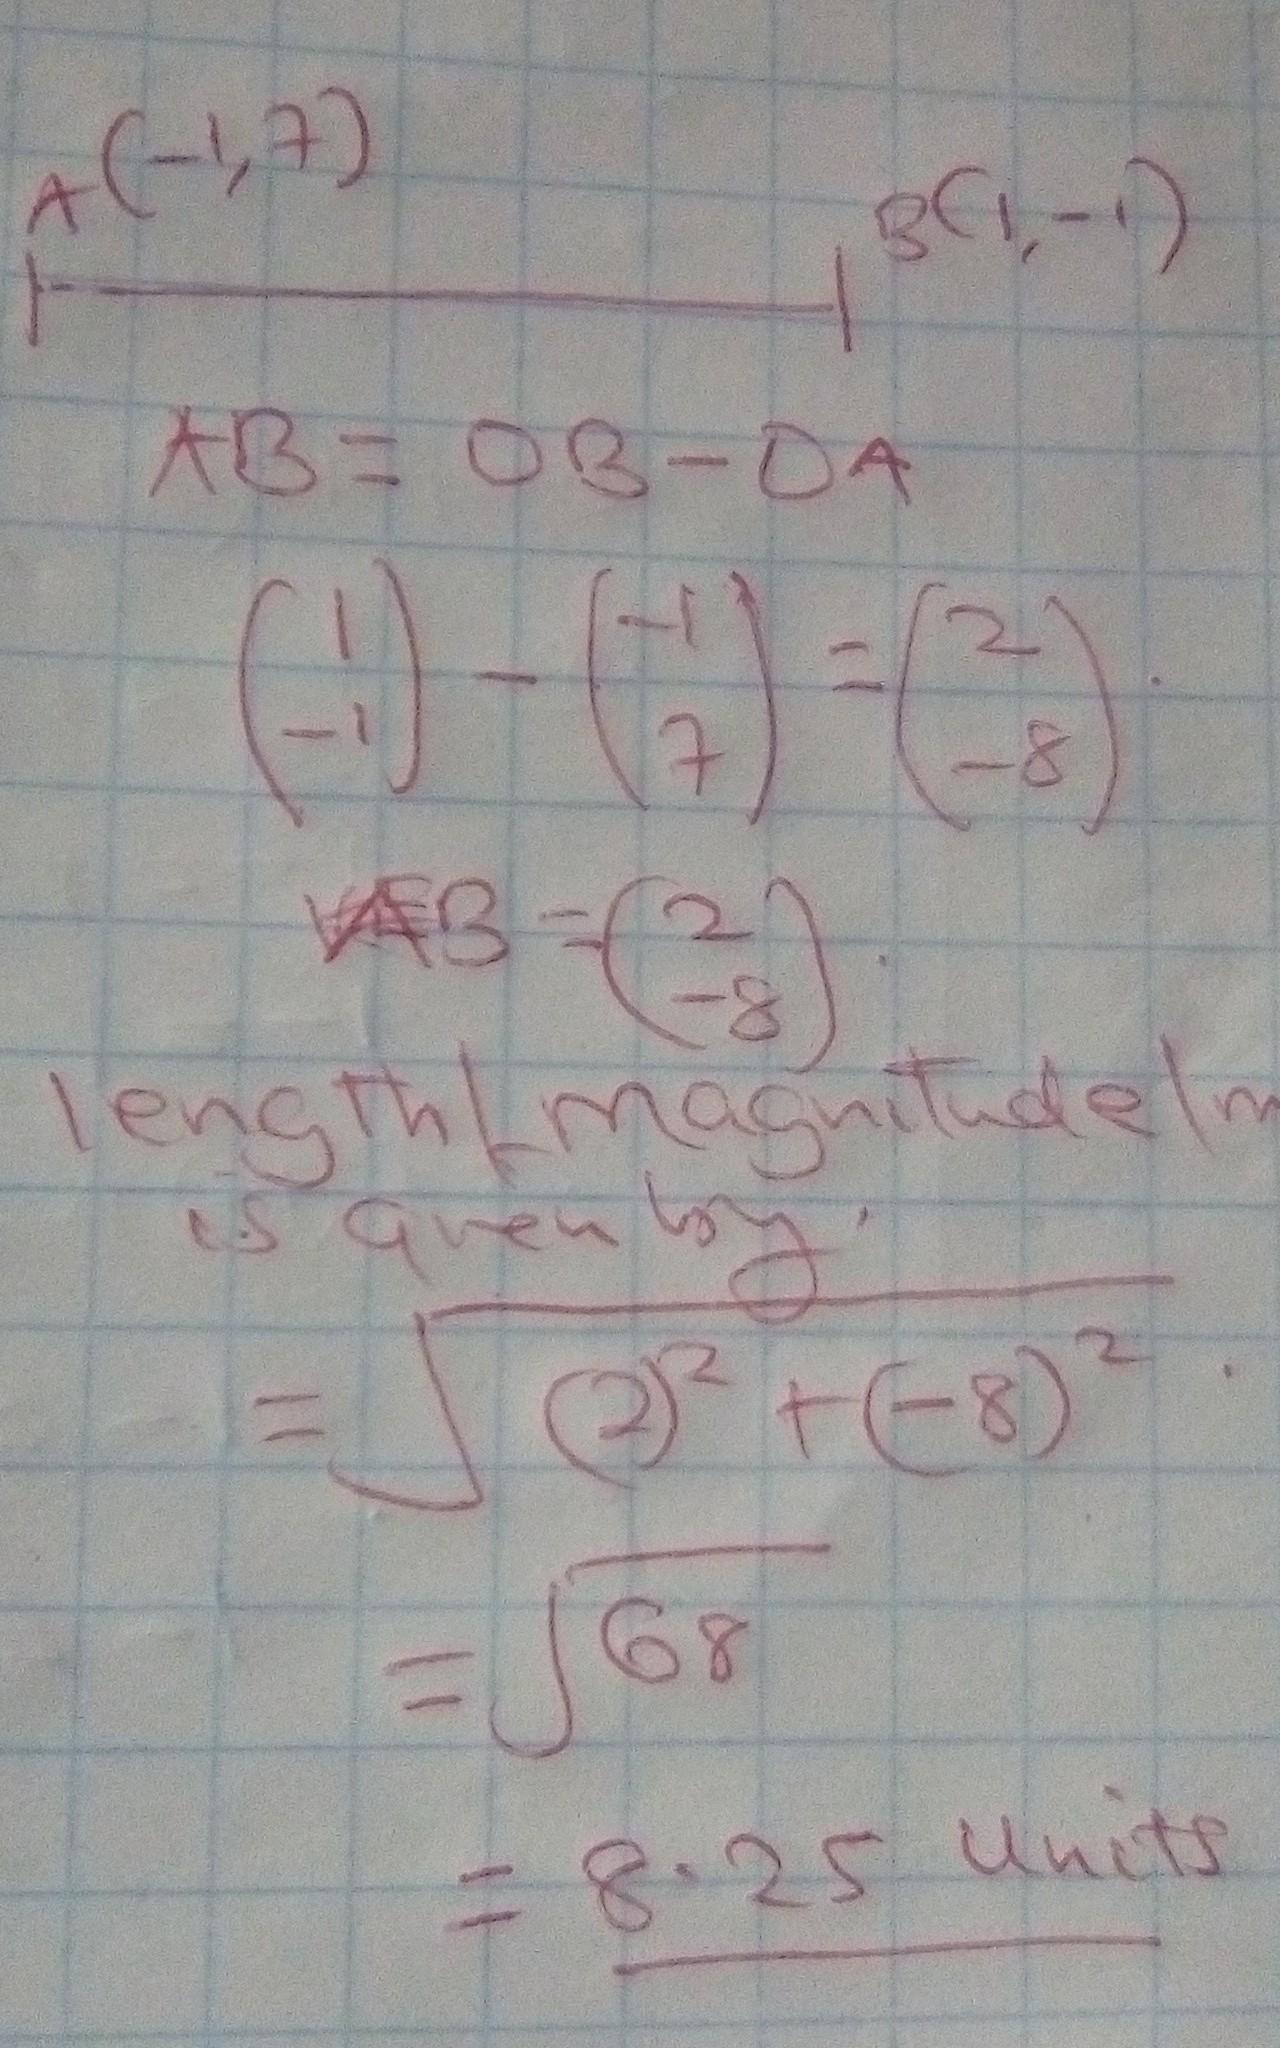 A(-1,7)
B(1,-1)
AB = OB - OA
(1 -1) - (-1 7) = (2 -8).
AB = (2 -8).
length/magnitude/m
is given by.
= √(2)² + (-8)²
= √68
= 8.25 units